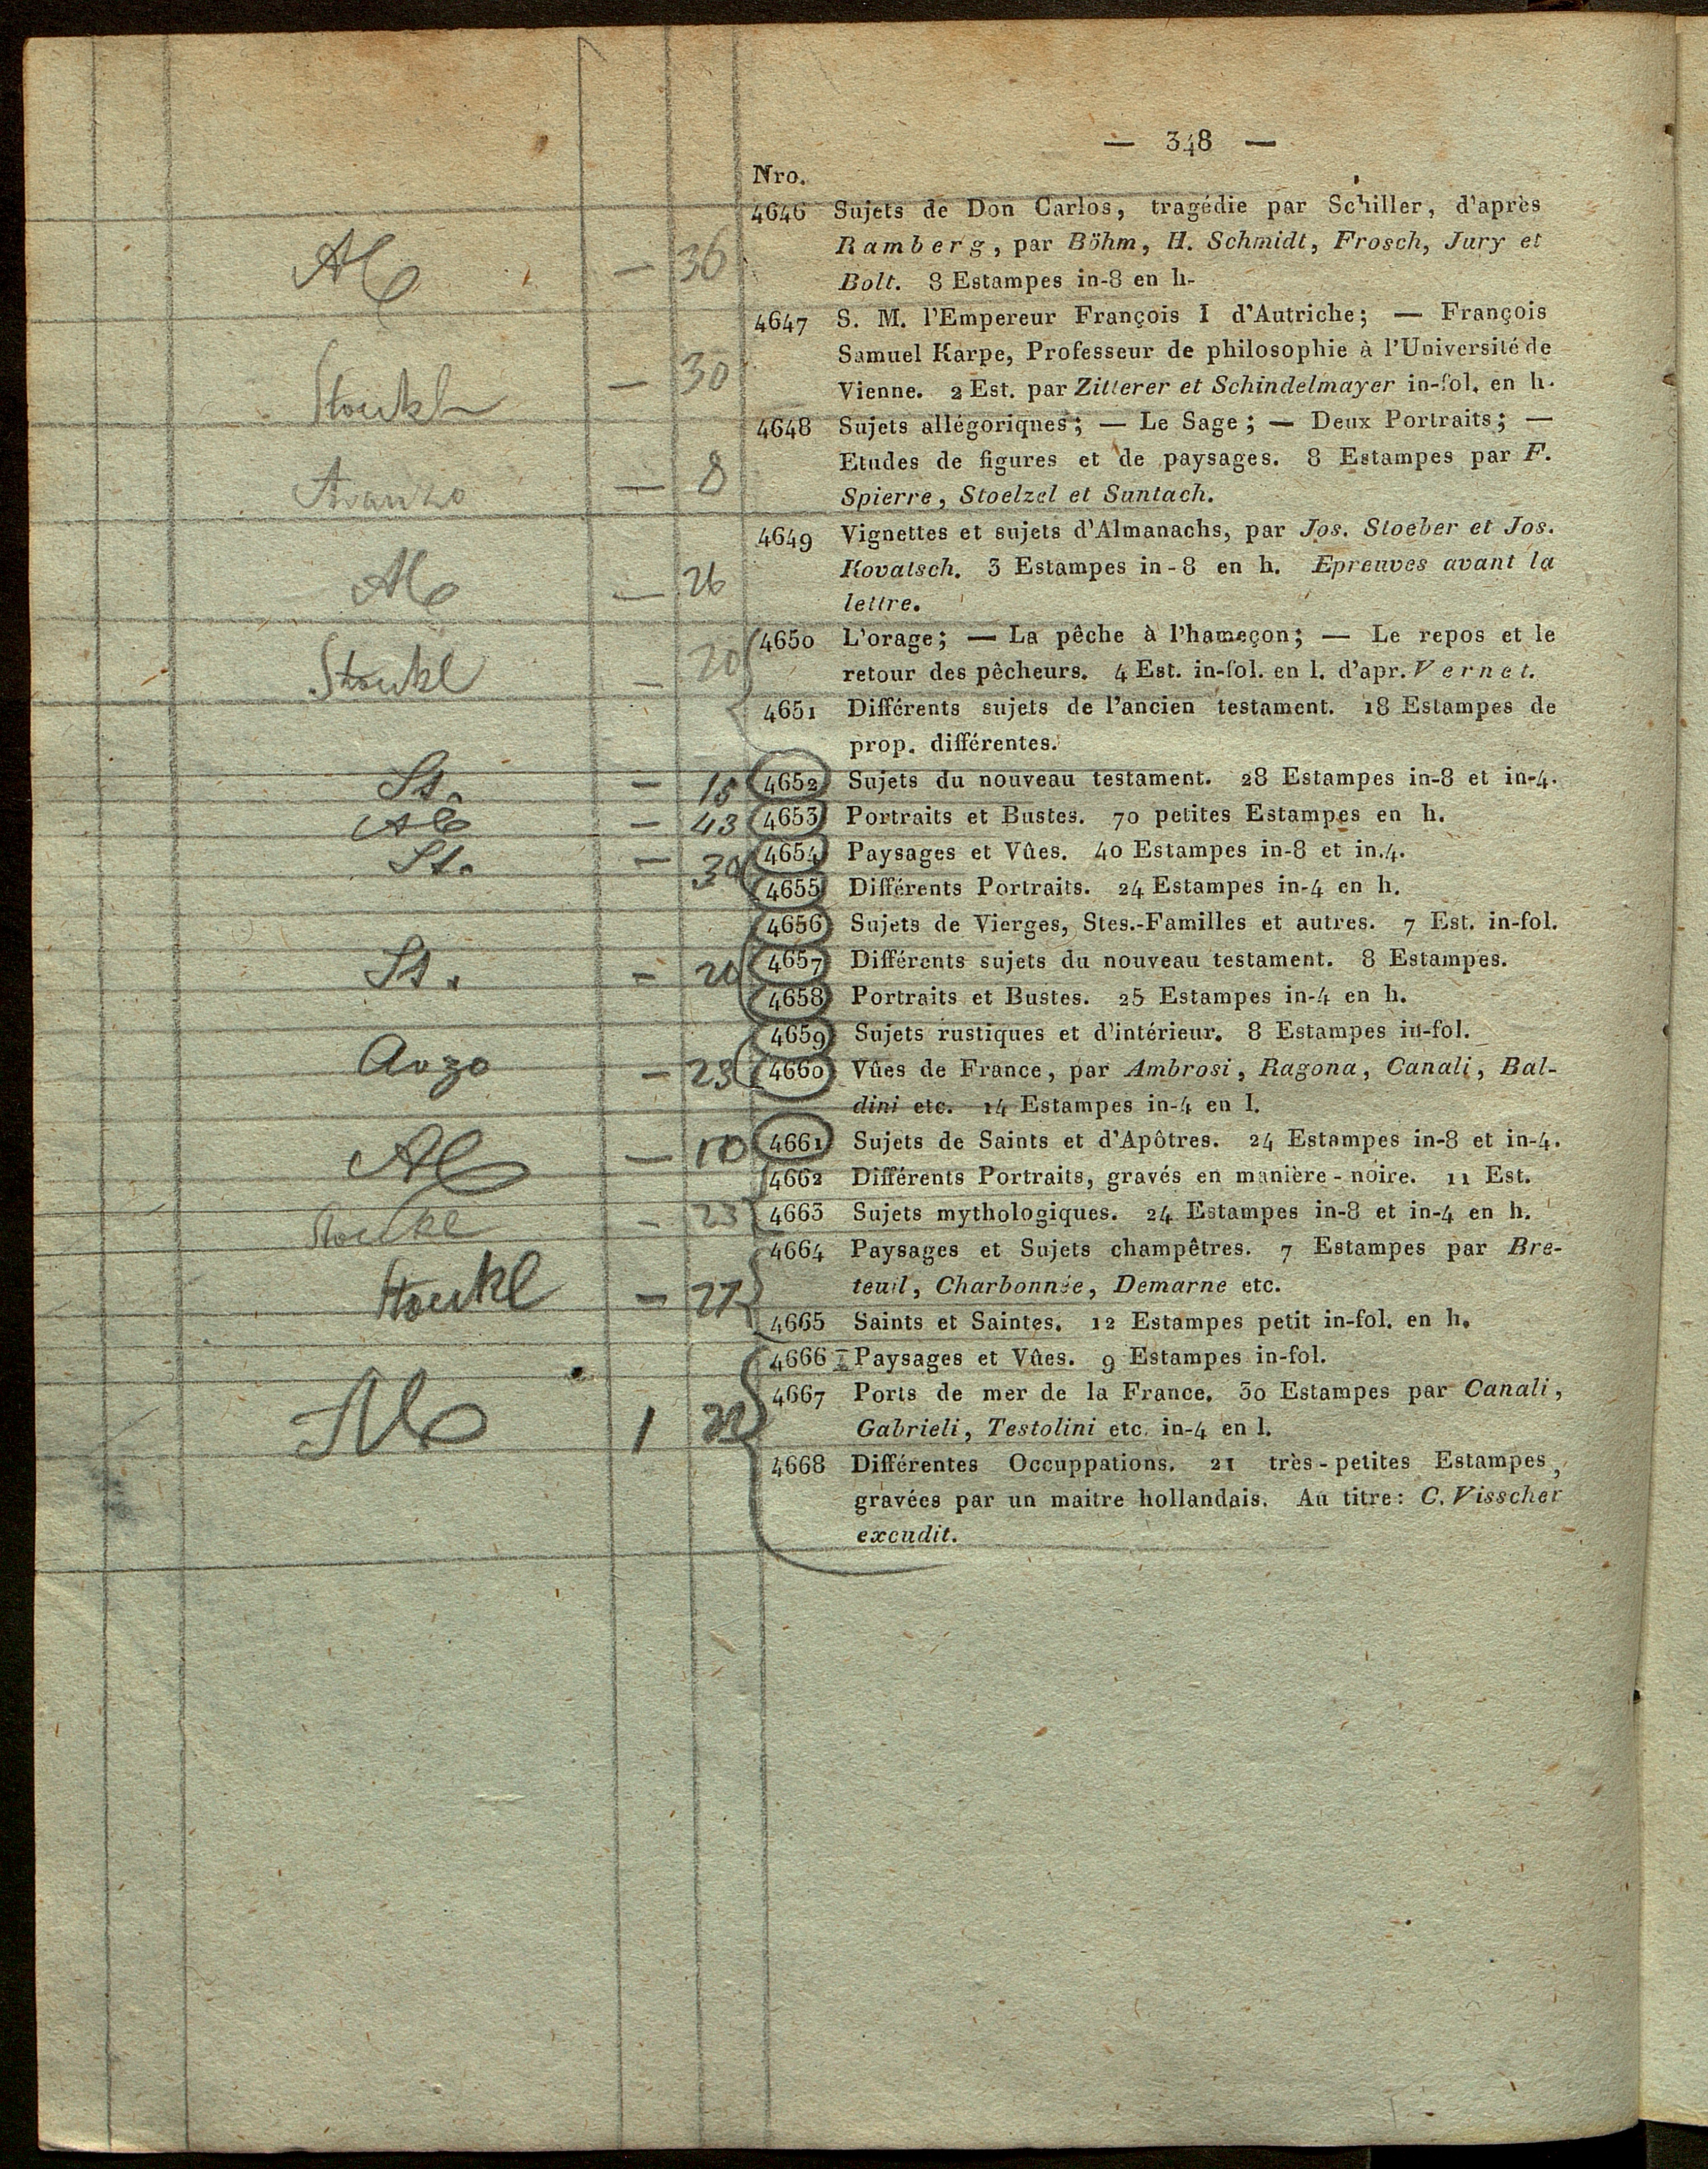 — 348 —
Nro.
4646 Sujets de Don Carlos, tragédie par Schiller, d'après
Ramberg, par Böhm, H. Schmidt, Frosch, Jury et
— 36
Bolt. 8 Estampes in-8 en h.
4647 S. M. l'Empereur François I d'Autriche; — François
Samuel Karpe, Professeur de philosophie à l'Université de
Stoukl — 30
Vienne. 2 Est. par Zitterer et Schindelmayer in-fol. en h.
4648 Sujets allégoriques; — Le Sage; — Deux Portraits; —
Etudes de figures et de paysages. 8 Estampes par F.
— 8
Spierre, Stoelzel et Suntach.
4649 Vignettes et sujets d'Almanachs, par Jos. Stoeber et Jos.
Kovatsch. 3 Estampes in-8 en h. Epreuves avant la
— 26
lettre.
4650 L'orage; — La pêche à l'hameçon; — Le repos et le
Stoukl — 20
retour des pêcheurs. 4 Est. in-fol. en l. d'apr. Vernet.
4651 Différents sujets de l'ancien testament. 18 Estampes de
prop. différentes.
St. — 15 4652 Sujets du nouveau testament. 28 Estampes in-8 et in-4.
— 43 4653 Portraits et Bustes. 70 petites Estampes en h.
St. — 30 4654 Paysages et Vûes. 40 Estampes in-8 et in.4.
4655 Différents Portraits. 24 Estampes in-4 en h.
4656 Sujets de Vierges, Stes.-Familles et autres. 7 Est. in-fol.
St. — 4657 Différents sujets du nouveau testament. 8 Estampes.
4658 Portraits et Bustes. 25 Estampes in-4 en h.
4659 Sujets rustiques et d'intérieur. 8 Estampes in-fol.
— 23 4660 Vûes de France, par Ambrosi, Ragona, Canali, Bal-
dini etc. 14 Estampes in-4 en l.
— 10 4661 Sujets de Saints et d'Apôtres. 24 Estampes in-8 et in-4.
4662 Différents Portraits, gravés en manière-noire. 11 Est.
— 23 4663 Sujets mythologiques. 24 Estampes in-8 et in-4 en h.
4664 Paysages et Sujets champêtres. 7 Estampes par Bre-
Stoukl — 27
teuil, Charbonnée, Demarne etc.
4665 Saints et Saintes. 12 Estampes petit in-fol. en h.
4666 Paysages et Vûes. 9 Estampes in-fol.
4667 Ports de mer de la France. 30 Estampes par Canali,
1
Gabrieli, Testolini etc. in-4 en l.
4668 Différentes Occuppations. 21 très-petites Estampes,
gravées par un maitre hollandais. Au titre: C. Visscher
excudit.